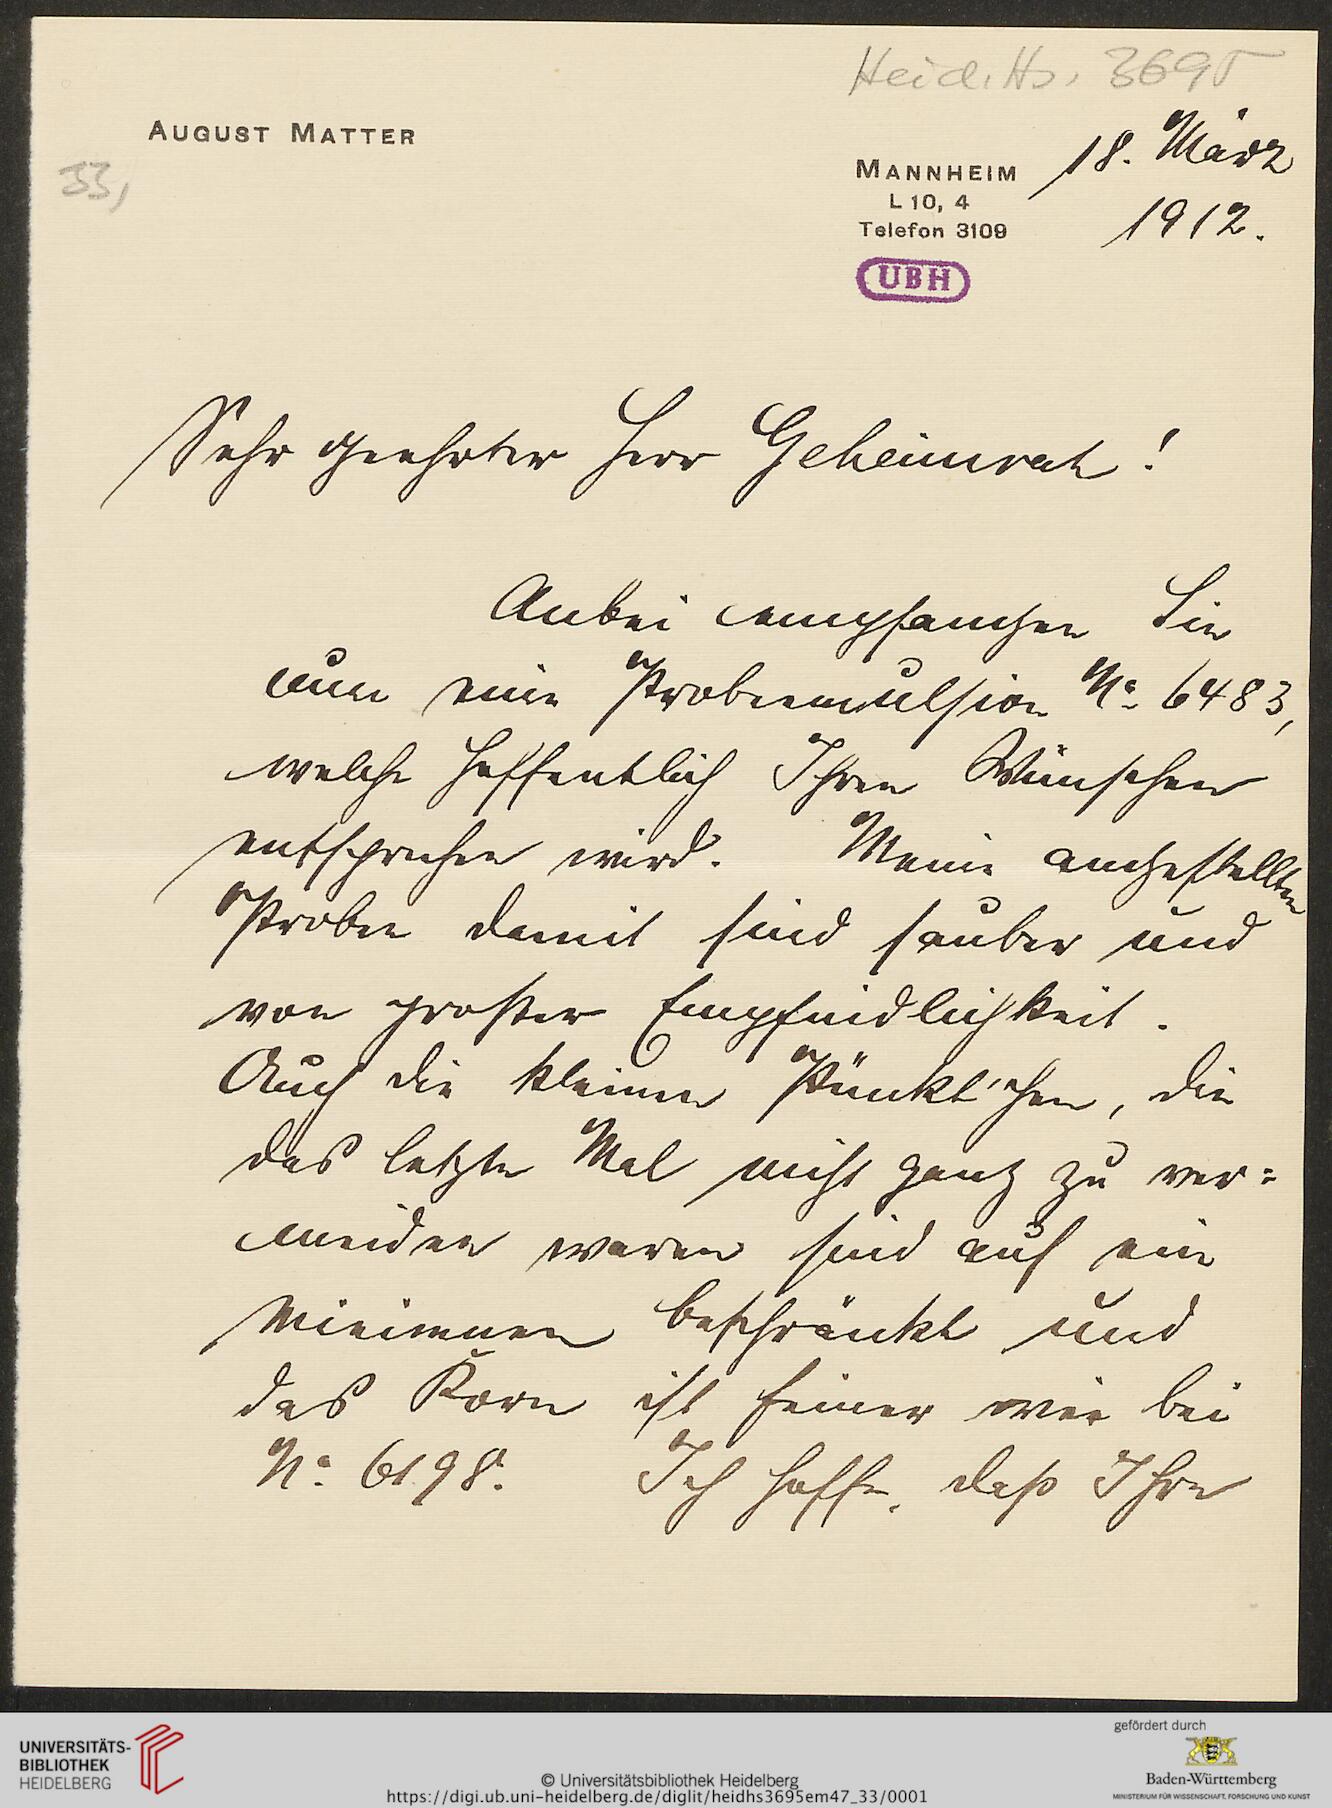 Heid. Hs. 3695
AUGUST MATTER
33,
MANNHEIM
L 10, 4
Telefon 3109
18. März
1912.
UBH
Sehr geehrter Herr Geheimrat!
Anbei empfangen Sie
nun eine Probeemulsion No. 6483,
welche hoffentlich Ihren Wünschen
entsprechen wird. Meine angestellten
Proben damit sind sauber und
von großer Empfindlichkeit.
Auch die kleinen Pünktchen, die
das letzte Mal nicht ganz zu ver-
meiden waren sind auf ein
Minimum beschränkt und
das Korn ist feiner wie bei
No. 6198. Ich hoffe, daß Ihre
UNIVERSITÄTS-
BIBLIOTHEK
HEIDELBERG
© Universitätsbibliothek Heidelberg
https://digi.ub.uni-heidelberg.de/diglit/heidhs3695em47_33/0001
gefördert durch
Baden-Württemberg
MINISTERIUM FÜR WISSENSCHAFT, FORSCHUNG UND KUNST